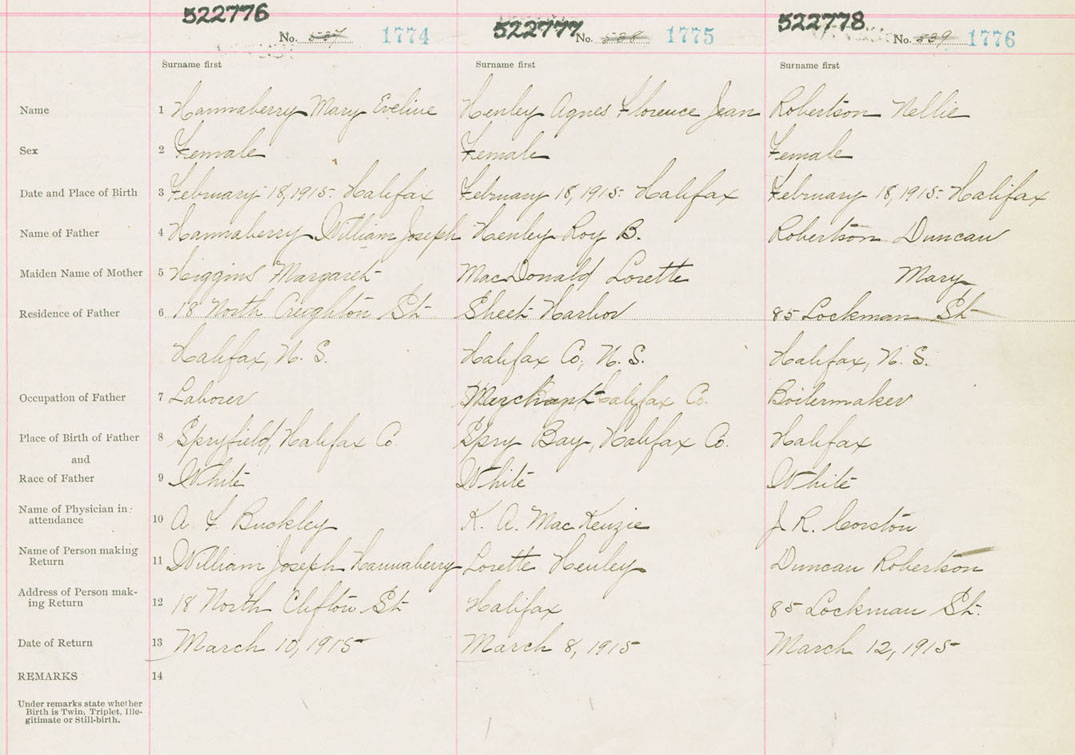 522776 522777 522778
No. 537 1774 No. 538 1775 No. 539 1776
Surname first Surname first Surname first
Name 1 Hannaberry Mary Eveline Henley Agnes Florence Jean Robertson Nellie
Sex 2 Female Female Female
Date and Place of Birth 3 February 18, 1915 Halifax February 18, 1915 Halifax February 18, 1915 Halifax
Name of Father 4 Hannaberry William Joseph Henley Roy B. Robertson Duncan
Maiden Name of Mother 5 Higgins Margaret MacDonald Lorette Mary
Residence of Father 6 18 North Creighton St. Sheet Harbor 85 Lockman St
Halifax, N. S. Halifax Co, N. S. Halifax, N. S.
Occupation of Father 7 Laborer Merchant Halifax Co. Boilermaker
Place of Birth of Father 8 Spryfield, Halifax Co. Spry Bay, Halifax Co. Halifax
and
Race of Father 9 White White White
Name of Physician in attendance 10 A. F Buckley K. A. MacKenzie J. R. Corston
Name of Person making Return 11 William Joseph Hannaberry Lorette Henley Duncan Robertson
Address of Person mak-
ing Return 12 18 North Clifton St. Halifax 85 Lockman St.
Date of Return 13 March 10, 1915 March 8, 1915 March 12, 1915
REMARKS 14
Under remarks state whether
Birth is Twin, Triplet, Ille-
gitimate or Still-birth.